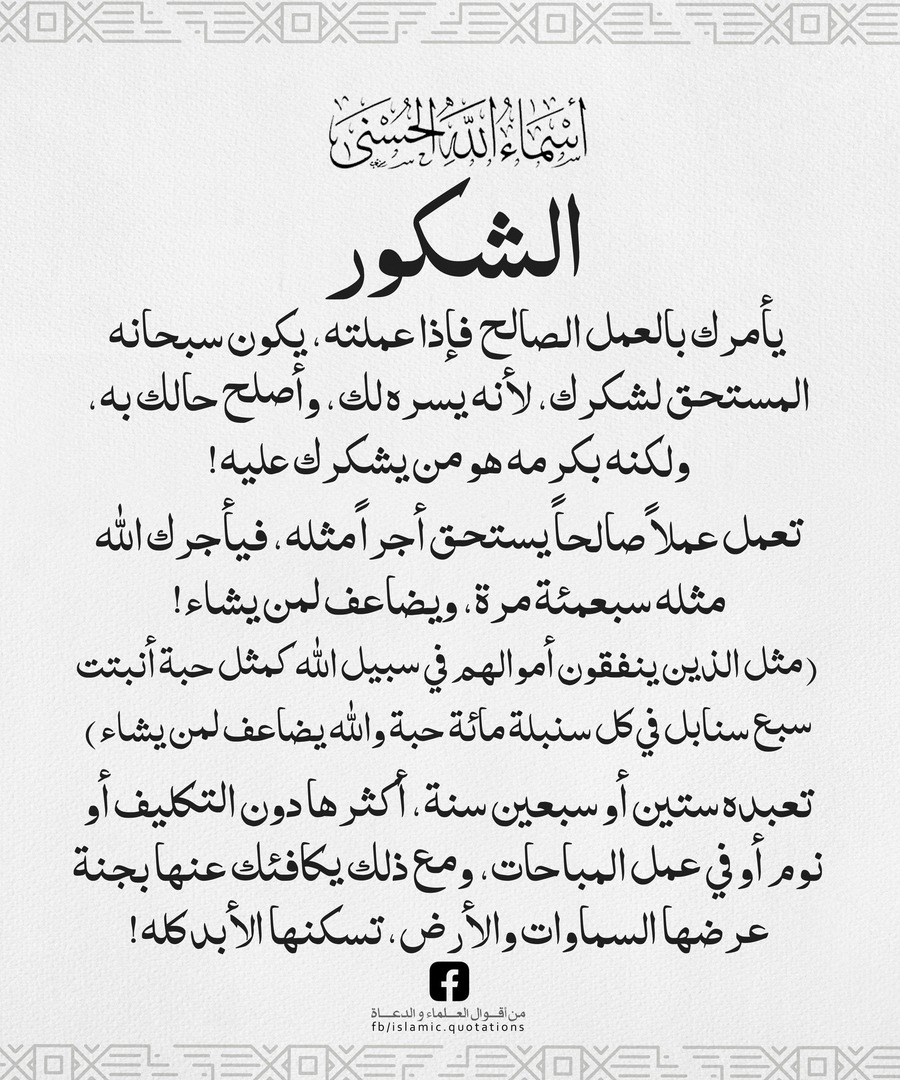 أسماء الله الحسنى
الشكور
يأمرك بالعمل الصالح فإذا عملته، يكون سبحانه
المستحق لشكرك، لأنه يسره لك، وأصلح حالك به،
ولكنه بكرمه هو من يشكرك عليه!
تعمل عملاً صالحاً يستحق أجراً مثله، فيأجرك الله
مثله سبعمئة مرة، ويضاعف لمن يشاء!
(مثل الذين ينفقون أموالهم في سبيل الله كمثل حبة أنبتت
سبع سنابل في كل سنبلة مائة حبة والله يضاعف لمن يشاء)
تعبده ستين أو سبعين سنة، أكثرها دون التكليف أو
نوم أو في عمل المباحات، ومع ذلك يكافئك عنها بجنة
عرضها السماوات والأرض، تسكنها الأبد كله!
من أقـوال العـلماء و الدعـاة
fb/islamic.quotations